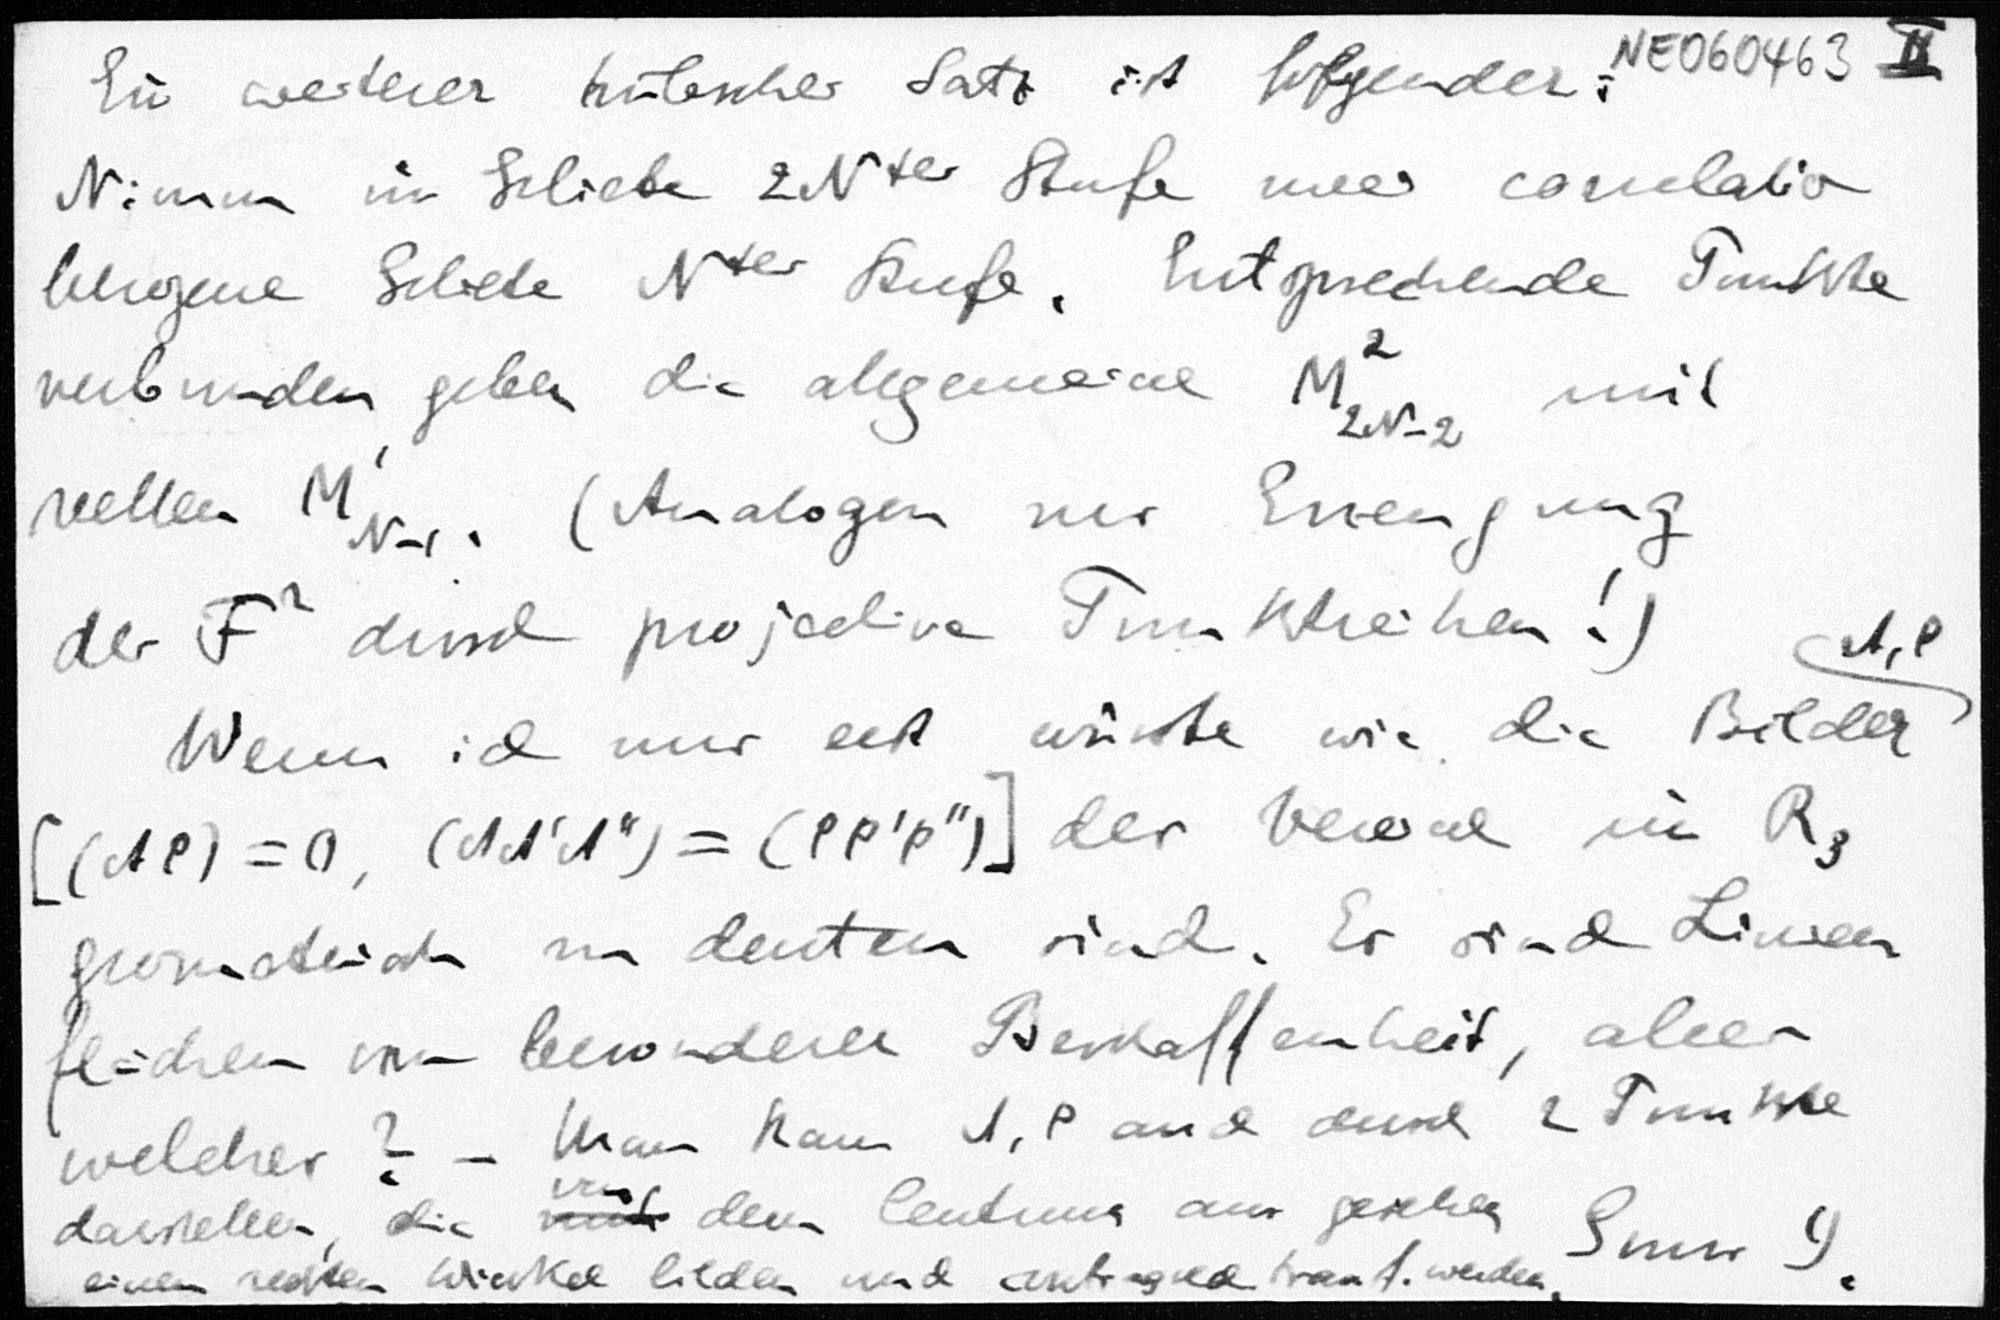 NE060463 II
Ein weiterer hübscher Satz ist folgender:
Nimm im Gebiete 2N ter Stufe zwei correlativ
bezogene Gebiete N ter Stufe. Entsprechende Punkte
verbunden, geben die allgemeine M²₂N₋₂ mit
reellen M'N₋₁. (Analogon zur Erzeugung
der F² durch projective Punktreihen!)
Λ, P
Wenn ich nur erst wüsste wie die Bilder
[(ΛP) = 0, (ΛΛ'Λ") = (PP'P")] der Beweg in R₃
geometrisch zu deuten sind. Es sind Linien
flächen von besonderer Beschaffenheit, aber
welcher? – Man kann Λ, P auch durch 2 Punkte
darstellen, die von dem Centrum aus gesehen
einen rechten Winkel bilden und contragred transf. werden.